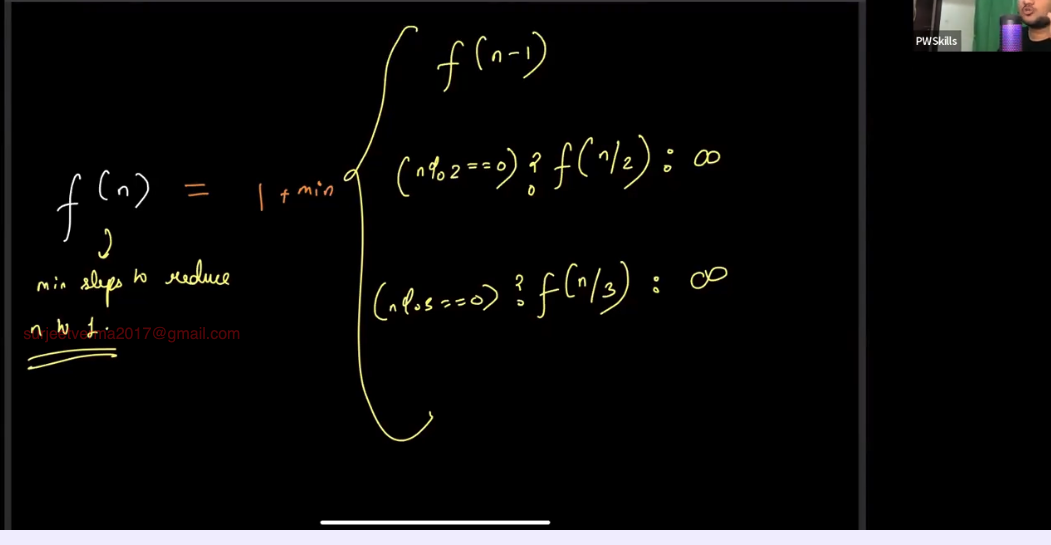 PWSkills
f(n-1)
(n%2==0) ? f(n/2) : ∞
f(n) = 1 + min
(n%3==0) ? f(n/3) : ∞
min steps to reduce
n to 1.
surjeetverma2017@gmail.com